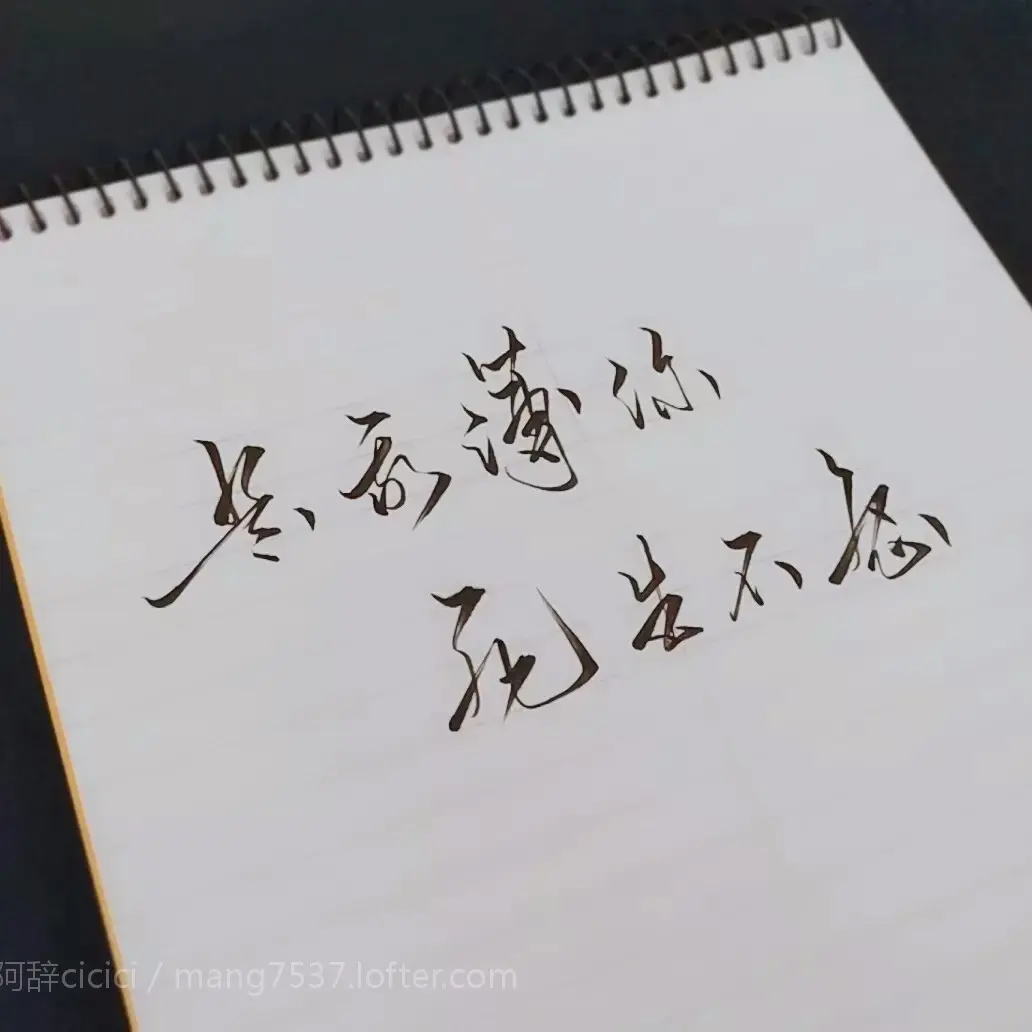 是我薄你
死生不怨
阿辞cicici / mang7537.lofter.com